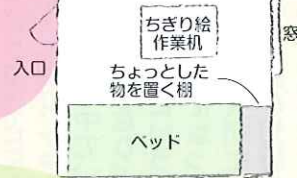 ちぎり絵
作業机
窓
入口
ちょっとした
物を置く棚
ベッド